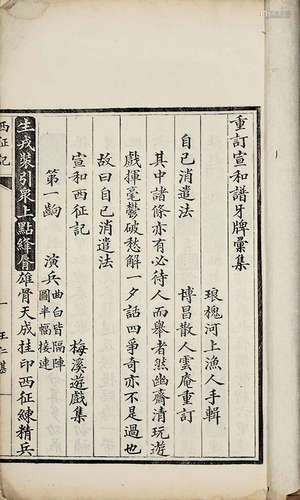 重訂宣和譜牙牌彙集
琅槐河上漁人手輯
博昌散人雲庵重訂
自己消遣法
其中諸條亦有必待人而舉者然幽齋清玩遊
戲揮毫鬱破愁解一夕話四爭奇亦不足過也
故曰自己消遣法
梅溪遊戲集
宣和西征記
第一齣 演兵 曲白皆隔陣 圖半幅接連
生戎裝引衆上點絳脣雄骨天成挂印西征練精兵
西征記
一